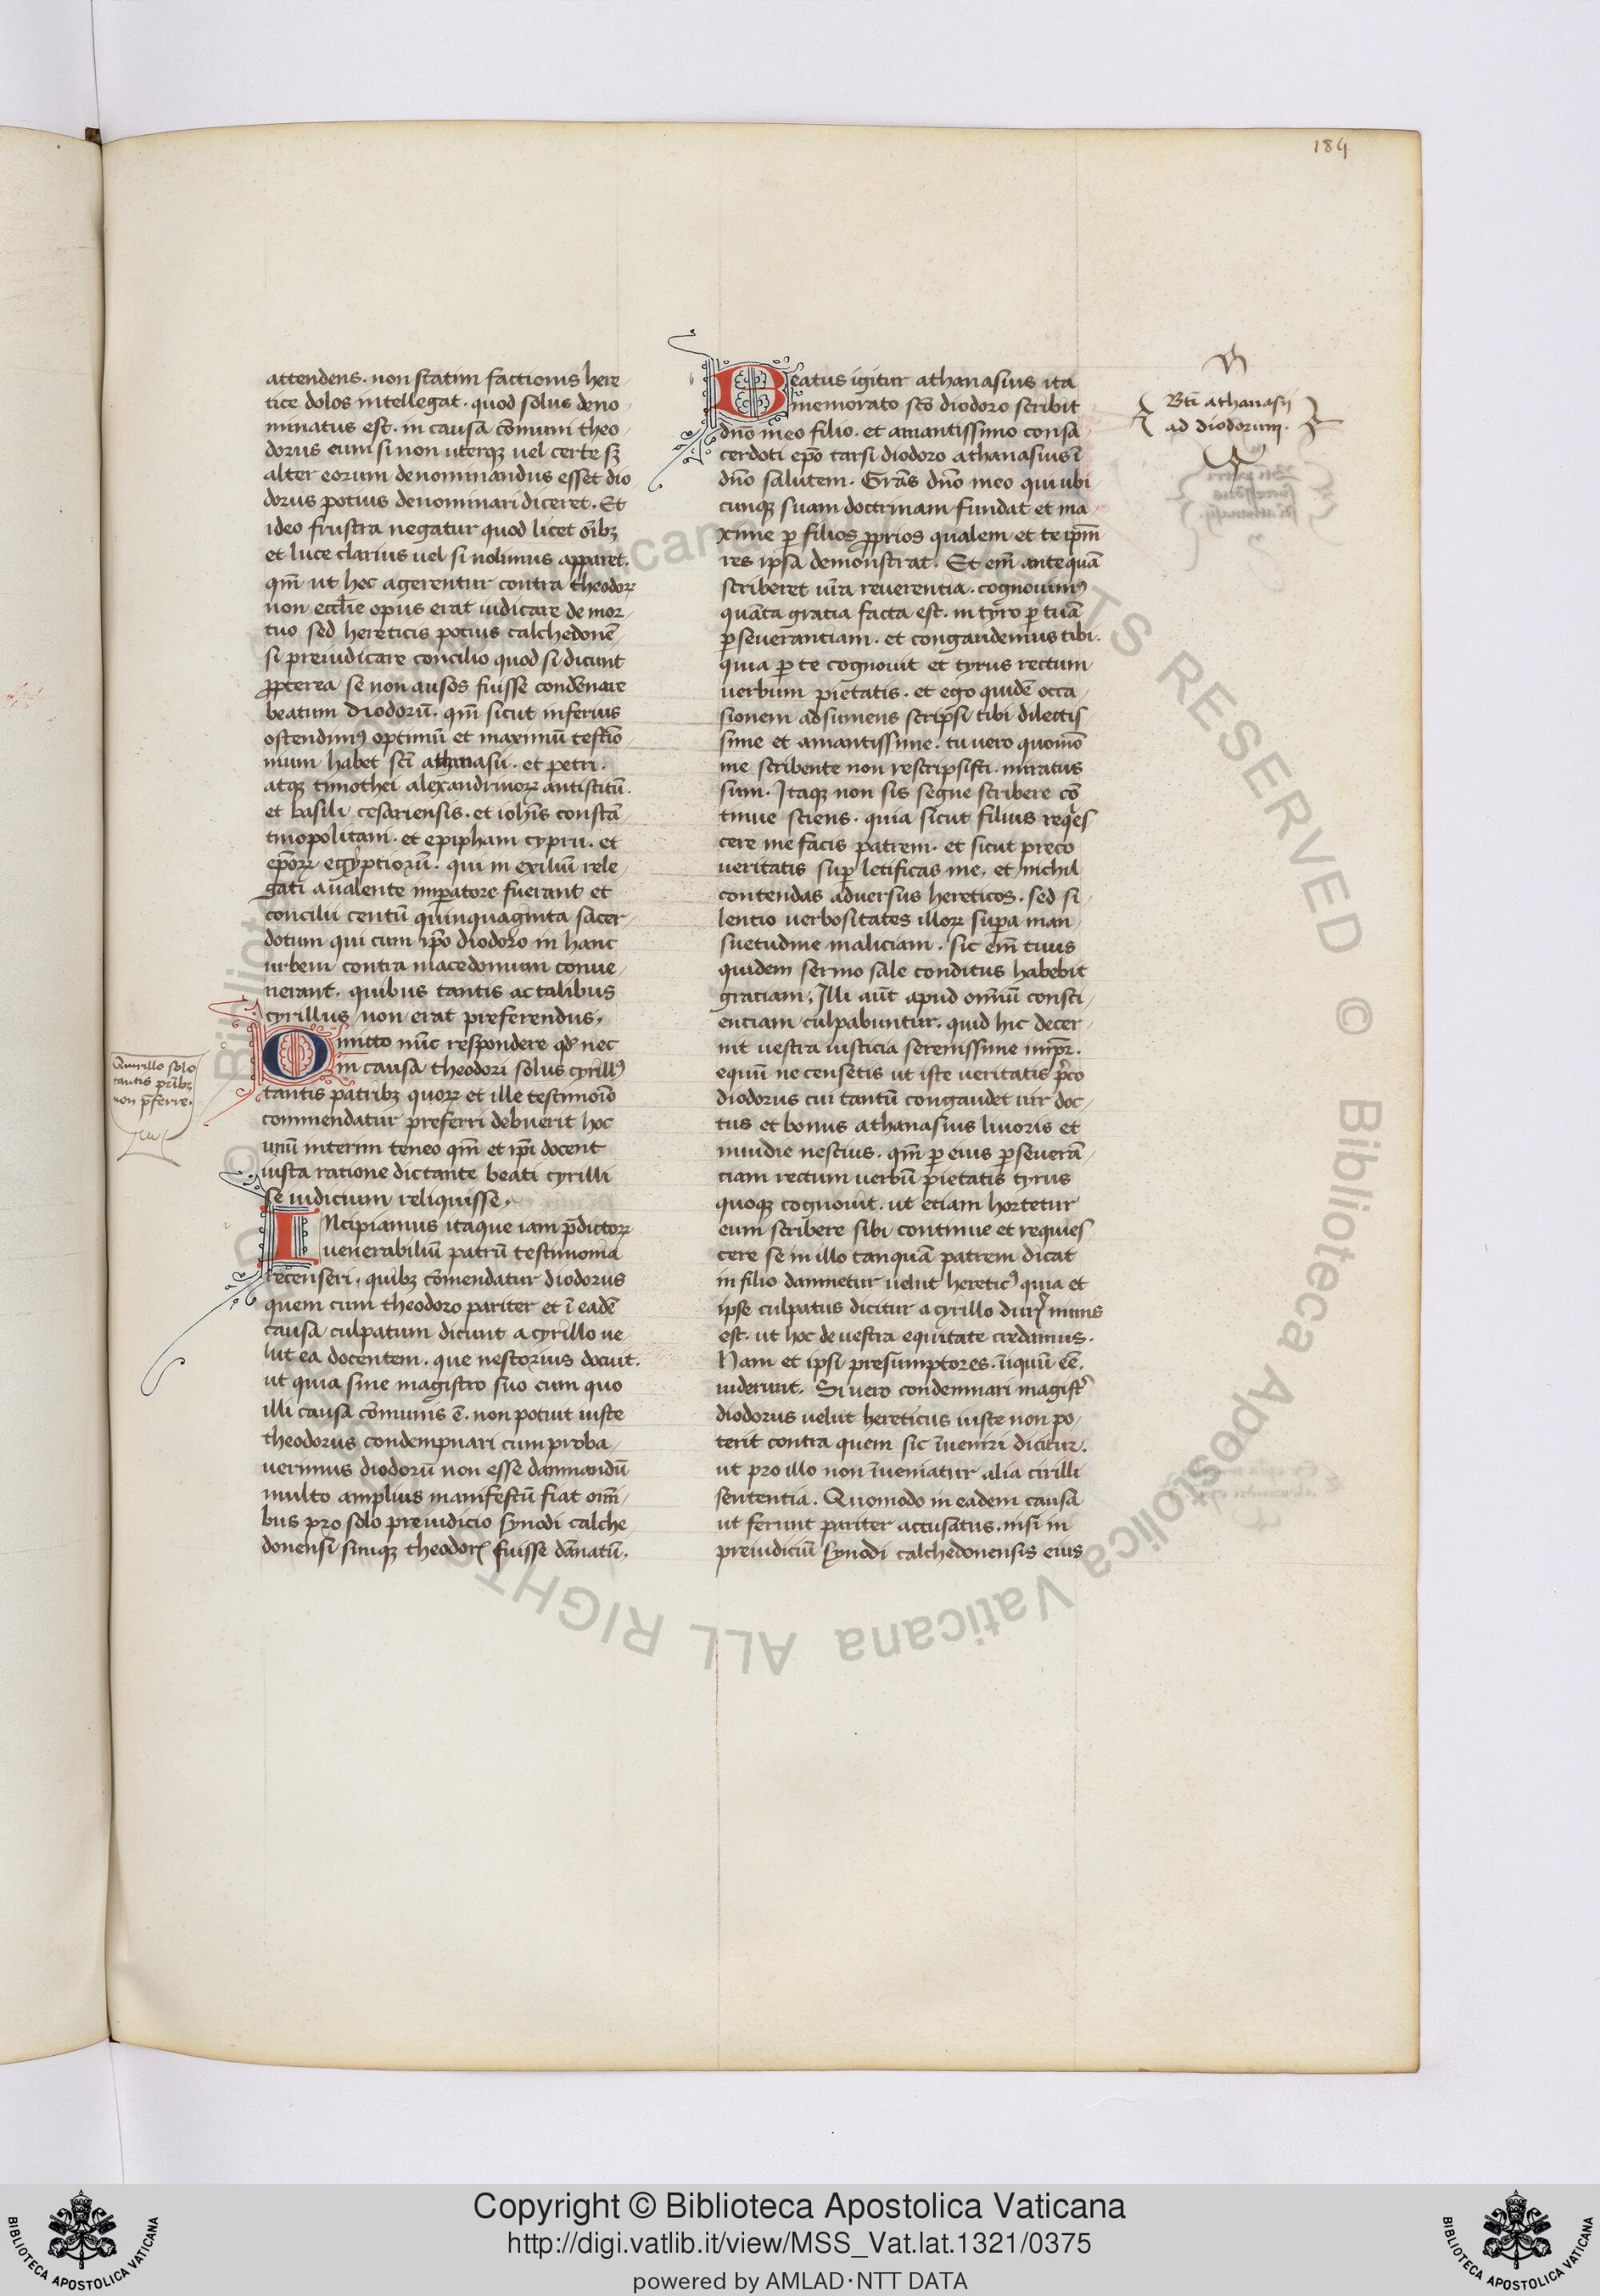 184
attendens. non statim factionis here-
tice dolos intellegat. quod solus deno-
minatus est. in causa cōmuni theo-
dorus cum si non uterqꝫ uel certe sꝫ
alter eorum denominandus esset dio
dorus potius denominari diceret. Et
ideo frustra negatur quod licet oībꝫ
et luce clarius uel si nolimus apparet.
qm̄ ut hec agerentur contra theodoꝝ
non eccłie opus erat iudicare de mor-
tuo sed hereticis potius calchedonē-
si preiudicare concilio quod si dicunt
ꝓpterea se non ausos fuisse condēnare
beatum diodorū. qm̄ sicut inferius
ostendimꝰ optimū et maximū testīo-
nium habet scī athanasii. et petri.
atqꝫ timothei alexandrinoꝝ antistitū.
et basili cesariensis. et iohīs constā-
tinopolitani. et epiphani cypri. et
ep̄oꝝ egyptiorū. qui in exiliū rele-
gati a ualente imꝑatore fuerant et
concilii centū quinquaginta sacer-
dotum qui cum ip̄o diodoro in hanc
urbem contra macedonium conue-
nerant. quibus tantis ac talibus
cyrillus non erat preferendus.
Omitto nūc respondere qđ nec
in causa theodori solus cyrillꝰ
tantis patribꝫ quoꝝ et ille testimoīo
commendatur preferri debuerit hoc
unū interim teneo qm̄ et ip̄i docent
iusta ratione dictante beati cyrilli
se iudicium reliquisse.
INcipiamus itaque iam p̄dictoꝝ
uenerabiliū patrū testimonia
recenseri. quibꝫ cōmendatur diodorus
quem cum theodoro pariter et ī eadē
causa culpatum dicunt a cyrillo ue
lut ea docentem. que nestorius docuit.
ut quia sine magistro suo cum quo
illi causa cōmunis ē. non potuit iuste
theodorus condempnari cum proba-
uerimus diodorū non esse damnandū
multo amplius manifestū fiat omī-
bus pro solo preiudicio synodi calche
donensi simqꝫ theodorꝰ fuisse dānatū.
Quirillo solo
tantis pr̄ibꝫ
non p̄ferre.
Beatus igitur athanasius ita
memorato scō diodoro scribit
dn̄o meo filio. et amantissimo consa-
cerdoti ep̄o tarsi diodoro athanasius ī
dn̄o salutem. Grās dn̄o meo qui ubi
cunqꝫ suam doctrinam fundat et ma-
xime ꝑ filios ꝓprios qualem et te ip̄m
res ipsa demonstrat. Et em̄ antequā
scriberet ūra reuerentia. cognouimꝰ
quāta gratia facta est. in tyro ꝑ tuā
ꝑseuerantiam. et congaudemus tibi.
quia ꝑ te cognouit et tyrus rectum
uerbum pietatis. et ego quidē occa-
sionem adsumens scripsi tibi dilectis-
sime et amantissime. tu uero quomō
me scribente non rescripsisti. miratus
sum. Itaqꝫ non sis segne scribere cō
tinue sciens. quia sicut filius reqꝛes
cere me facis patrem. et sicut preco
ueritatis suꝑ letificas me. et nichil
contendas aduersus hereticos. sed si-
lentio uerbositates illoꝝ supa man-
suetudine maliciam. sic em̄ tuus
quidem sermo sale conditus habebit
graciam; Illi aūt apud omniū consci-
entiam culpabuntur. quid hic decer-
nit uestra iusticia serenissime imꝑr.
equū ne censetis ut iste ueritatis p̄co
diodorus cui tantū congaudet uir doc-
tus et bonus athanasius liuoris et
inuidie nescius. qm̄ ꝑ eius ꝑseuerā-
ciam rectum uerbū pietatis tyrus
quoqꝫ cognouit. ut etiam hortetur
eum scribere sibi continue et requies-
cere se in illo tanquā patrem dicat
in filio damnetur uelut hereticꝰ quia et
ipse culpatus dicitur a cyrillo durꝰ nimis
est. ut hoc de uestra equitate credamus.
Nam et ipsi presumptores. iniquū eē.
uiderunt. Si uero condemnari magistr̄
diodorus uelut hereticus iuste non po-
terit contra quem sic īueniri dicitur.
ut pro illo non īueniatur alia cirilli
sententia. Quomodo in eadem causa
ut ferunt pariter accusatus. nisi in
preiudiciū synodi calchedonensis eius
Bt̄i athanasij
ad diodorum.
© Biblioteca Apostolica Vaticana ALL RIGHTS RESERVED
Copyright © Biblioteca Apostolica Vaticana
http://digi.vatlib.it/view/MSS_Vat.lat.1321/0375
powered by AMLAD·NTT DATA
BIBLIOTECA APOSTOLICA VATICANA
BIBLIOTECA APOSTOLICA VATICANA